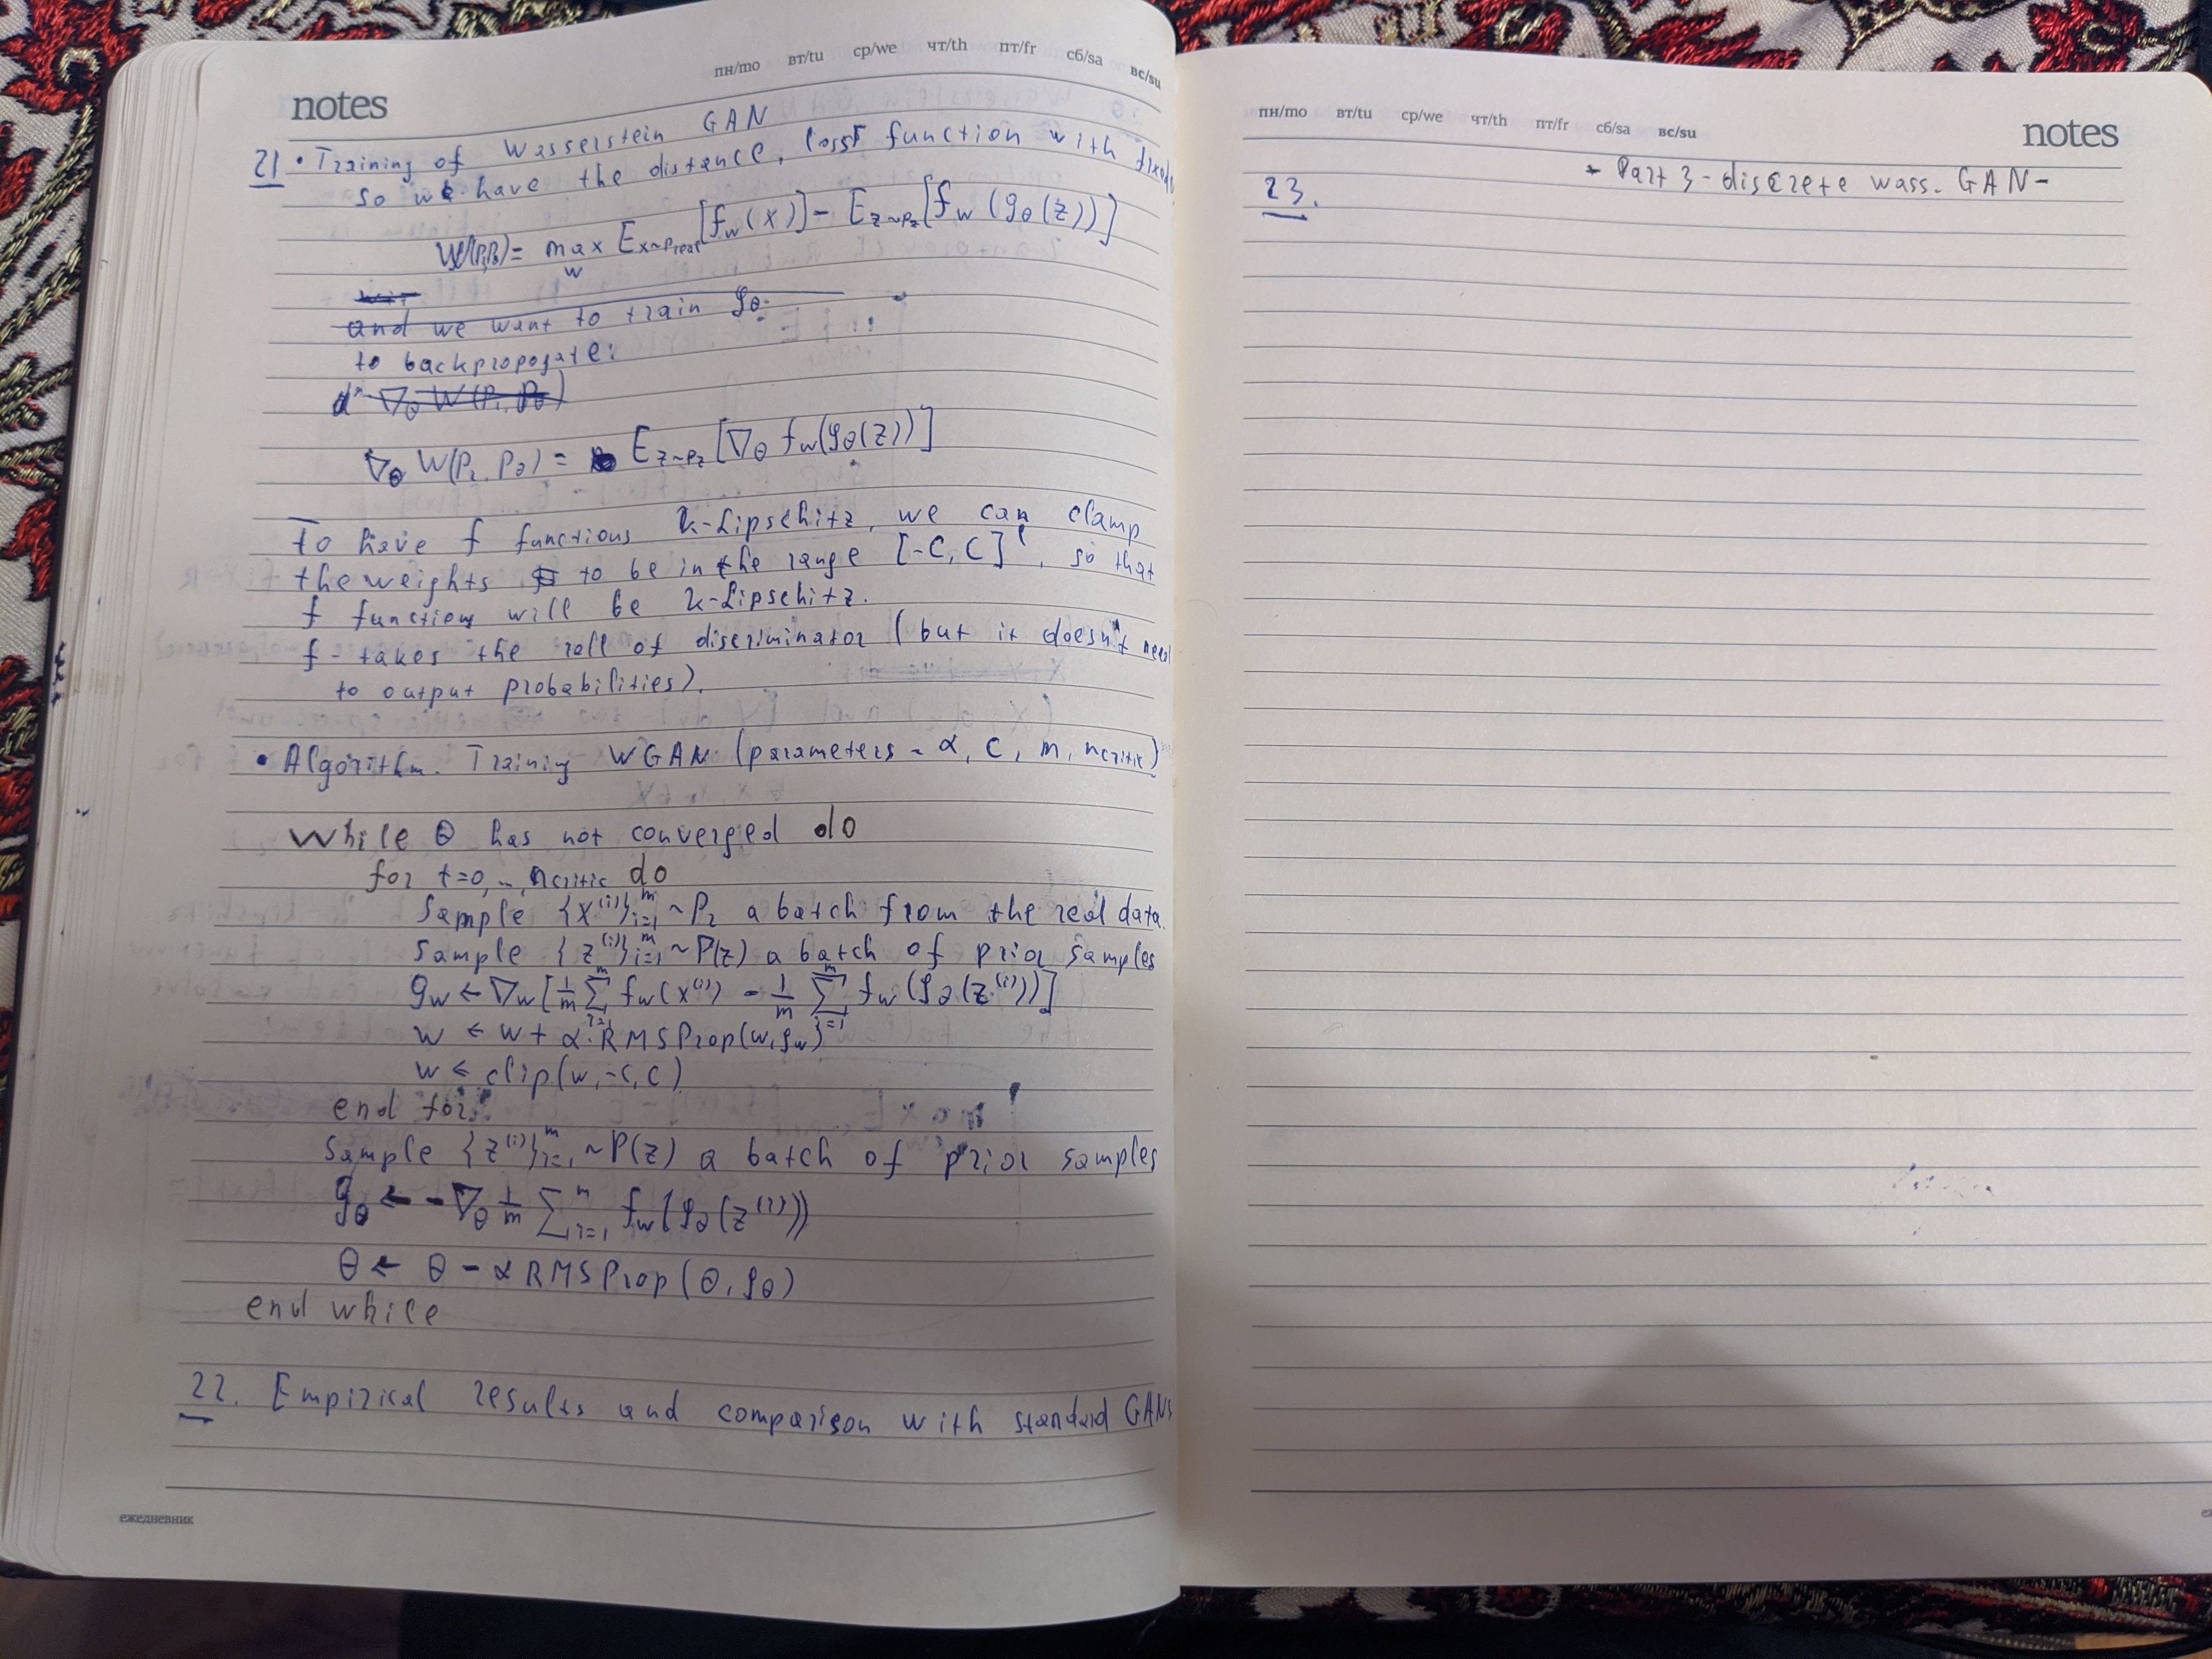 notes
пн/mo вт/tu ср/we чт/th пт/fr сб/sa вс/su
21 • Training of Wasserstein GAN
so we have the distance, loss function with fixed
W(Pr,Pθ) = max_w E_{x~Preal}[f_w(x)] - E_{z~Pz}[f_w(g_θ(z))]
and we want to train g_θ.
to backpropogate:
∇_θ W(Pr, Pθ)
∇_θ W(Pr, Pθ) = E_{z~Pz}[∇_θ f_w(g_θ(z))]
To have f functions k-Lipschitz, we can clamp
the weights to be in the range [-C, C]^l, so that
f functions will be k-Lipschitz.
f - takes the roll of discriminator (but it doesn't need
to output probabilities).
• Algorithm. Training WGAN (parameters - α, c, m, n_critic)
While θ has not converged do
for t=0, .., n_critic do
Sample {x^(i)}_{i=1}^m ~ Pr a batch from the real data.
Sample {z^(i)}_{i=1}^m ~ P(z) a batch of prior samples
g_w ← ∇_w [1/m Σ_{i=1}^m f_w(x^(i)) - 1/m Σ_{i=1}^m f_w(g_θ(z^(i)))]
w ← w + α·RMSProp(w, g_w)
w ← clip(w, -c, c)
end for
Sample {z^(i)}_{i=1}^m ~ P(z) a batch of prior samples
g_θ ← -∇_θ 1/m Σ_{i=1}^m f_w(g_θ(z^(i)))
θ ← θ - α RMSProp(θ, g_θ)
end while
22. Empirical results and comparison with standard GANs
ежедневник
пн/mo вт/tu ср/we чт/th пт/fr сб/sa вс/su
notes
- Part 3 - discrete wass. GAN -
23.